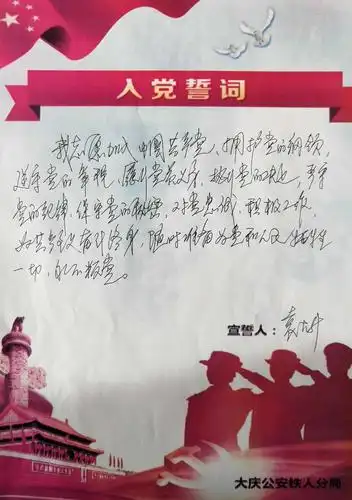 入党誓词
我志愿加入中国共产党，拥护党的纲领，
遵守党的章程，履行党员义务，执行党的决定，严守
党的纪律，保守党的秘密，对党忠诚，积极工作，
为共产主义奋斗终身，随时准备为党和人民牺牲
一切，永不叛党。
宣誓人：袁
大庆公安铁人分局